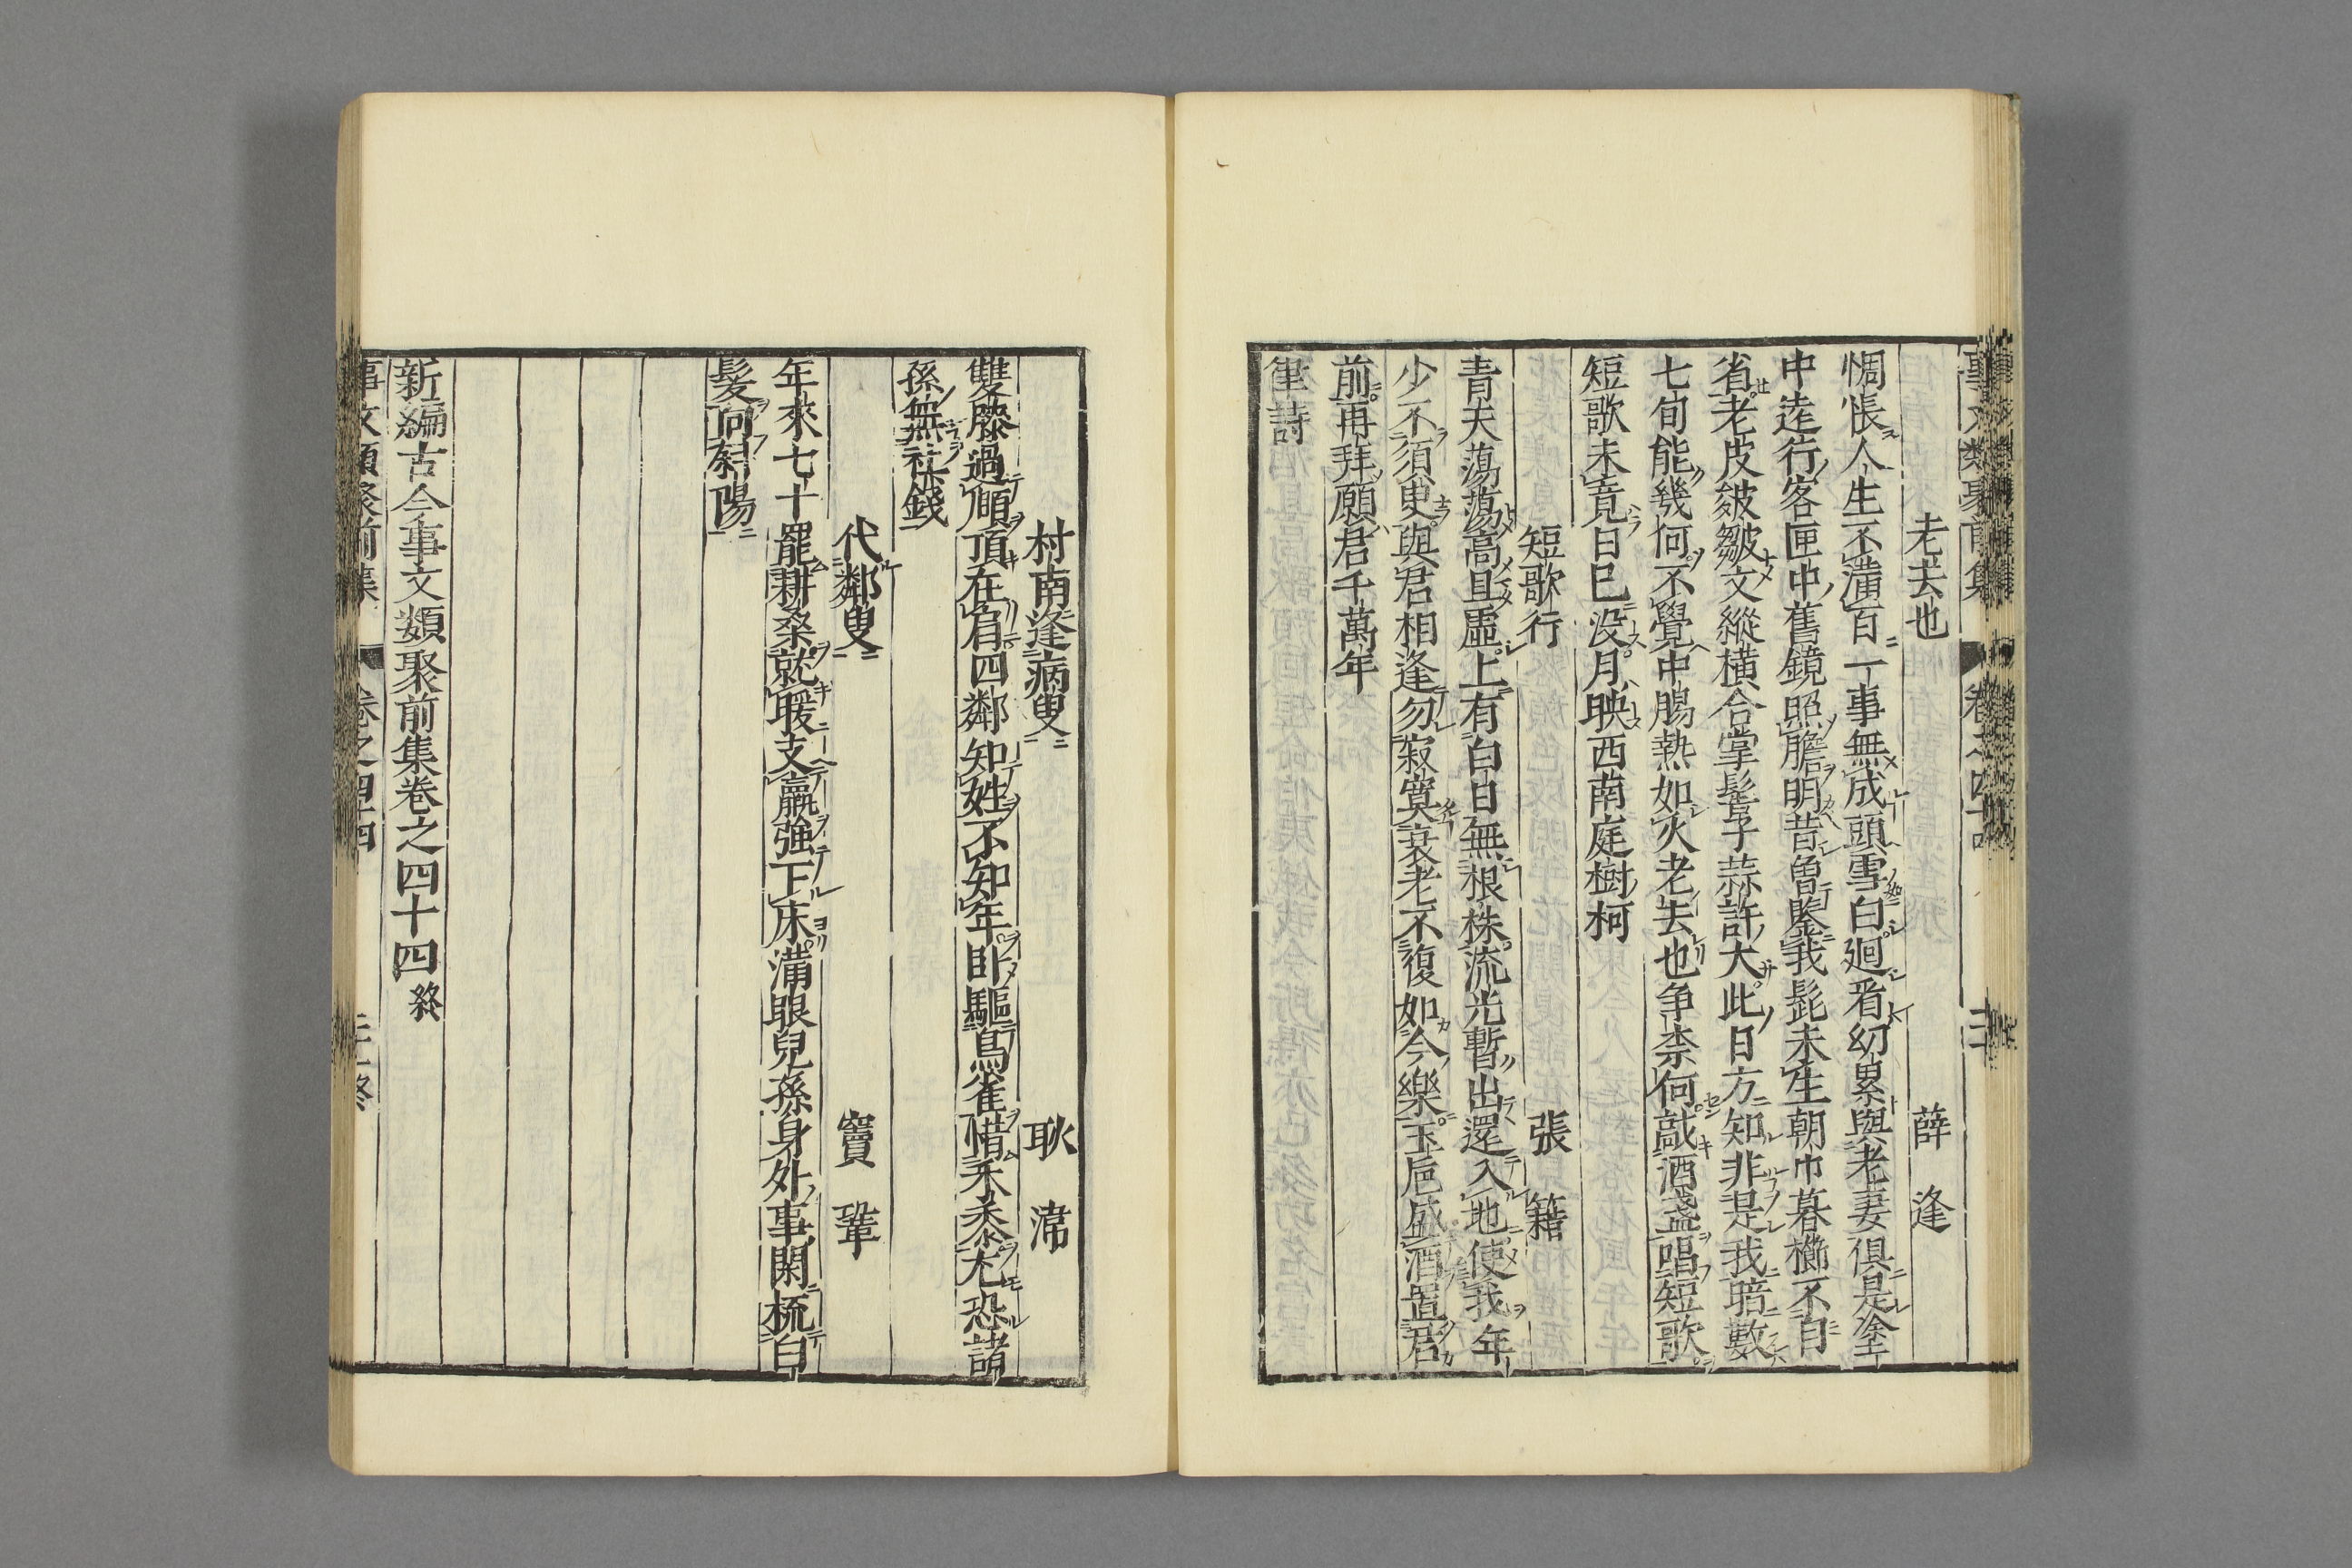 老去也 薛 逢
惆悵人生不滿百一事無成頭雪白廻看幼累與老妻俱是塗
中遠行客匣中舊鏡照膽明昔曽鑒我髭未生朝巾暮櫛不自
省老皮皴皺文縱橫合掌髻子蒜許大此日方知非是我暗數
七旬能幾何不覺中腸熱如火老去也争柰何敲酒盞唱短歌
短歌未竟日已没月映西南庭樹柯
短歌行 張 籍
青天蕩蕩高且虛上有白日無根株流光暫出還入地使我年
少不須臾與君相逢勿寂寞衰老不復如今樂玉巵盛酒置君
前再拜願君千萬年
律詩
村南逢病叟 耿 湋
雙膝過頤頂在肩四鄰知姓不知年卧驅鳥雀惜禾黍尤恐諸
孫無社錢
代鄰叟 竇 鞏
年來七十罷耕桑就暖支羸強下床滿眼兒孫身外事閑梳白
髮向斜陽
新編古今事文類聚前集卷之四十四終